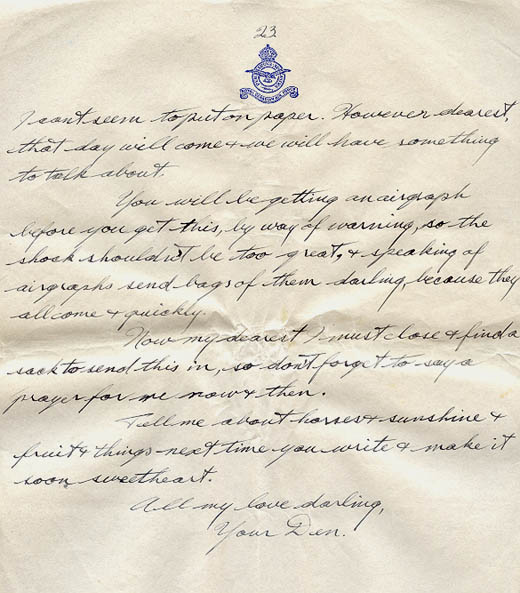 23
I can't seem to put on paper. However dearest,
that day will come & we will have something
to talk about.
You will be getting an airgraph
before you get this, by way of warning, so the
shock shouldn't be too great, & speaking of
airgraphs send bags of them darling, because they
all come & quickly.
Now my dearest I must close & find a
sack to send this in, so don't forget to say a
prayer for me now & then.
Tell me about horses & sunshine &
fruit & things next time you write & make it
soon sweetheart.
All my love darling,
Your Den.